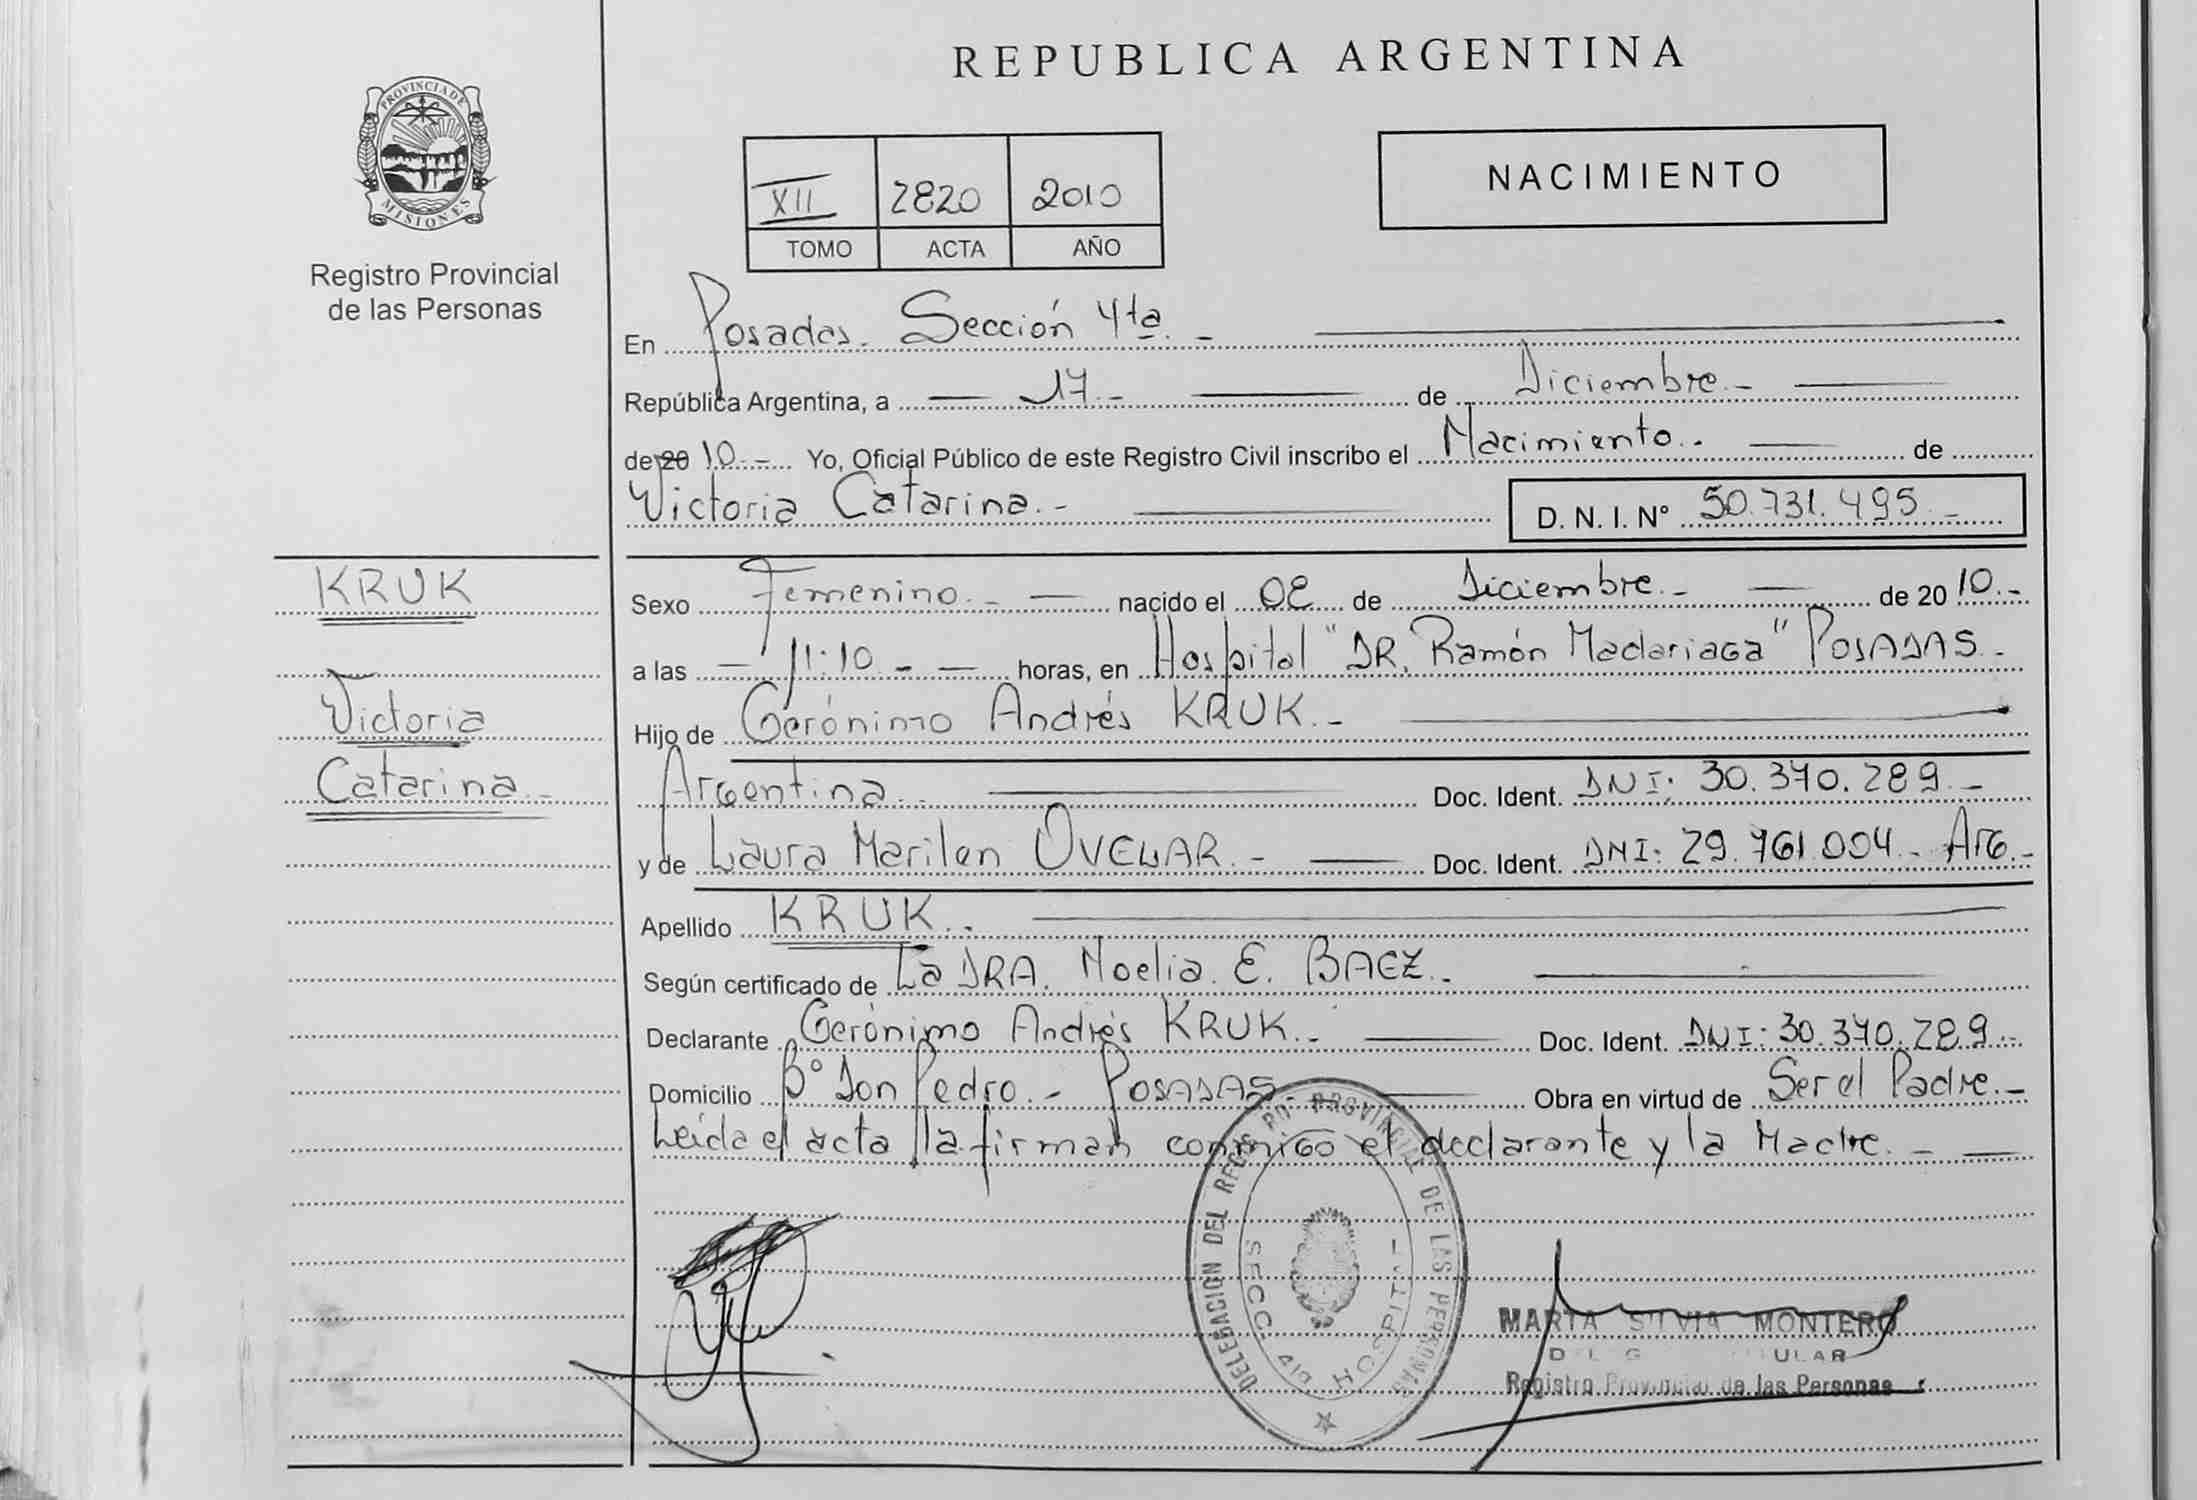 REPUBLICA ARGENTINA
PROVINCIA DE MISIONES
Registro Provincial
de las Personas
XII 2820 2010
TOMO ACTA AÑO
NACIMIENTO
En Posadas. Sección 4ta. -
República Argentina, a - 17 - de Diciembre. -
de 20 10. - Yo, Oficial Público de este Registro Civil inscribo el Nacimiento. - de
Victoria Catarina. - D. N. I. Nº 50.731.495. -
KRUK
Victoria
Catarina. -
Sexo Femenino. - nacido el 02 de Diciembre. - de 20 10. -
a las - 11:10. - horas, en Hospital "DR. Ramón Madariaga" POSADAS. -
Hijo de Gerónimo Andrés KRUK. -
Argentina. - Doc. Ident. DNI: 30.370.289. -
y de Laura Marilen OVELAR. - Doc. Ident. DNI: 29.761.004. - Arg. -
Apellido KRUK. -
Según certificado de La DRA. Noelia. E. BAEZ. -
Declarante Gerónimo Andrés KRUK. - Doc. Ident. DNI: 30.370.289. -
Domicilio Bº Don Pedro. - POSADAS. - Obra en virtud de Ser el Padre. -
Leída el acta la firman conmigo el declarante y la Madre. -
DELEGACION DEL REGISTRO PROVINCIAL DE LAS PERSONAS
SECC. 4ta HOSPITAL
MARTA SILVIA MONTERO
Registro Provincial de las Personas